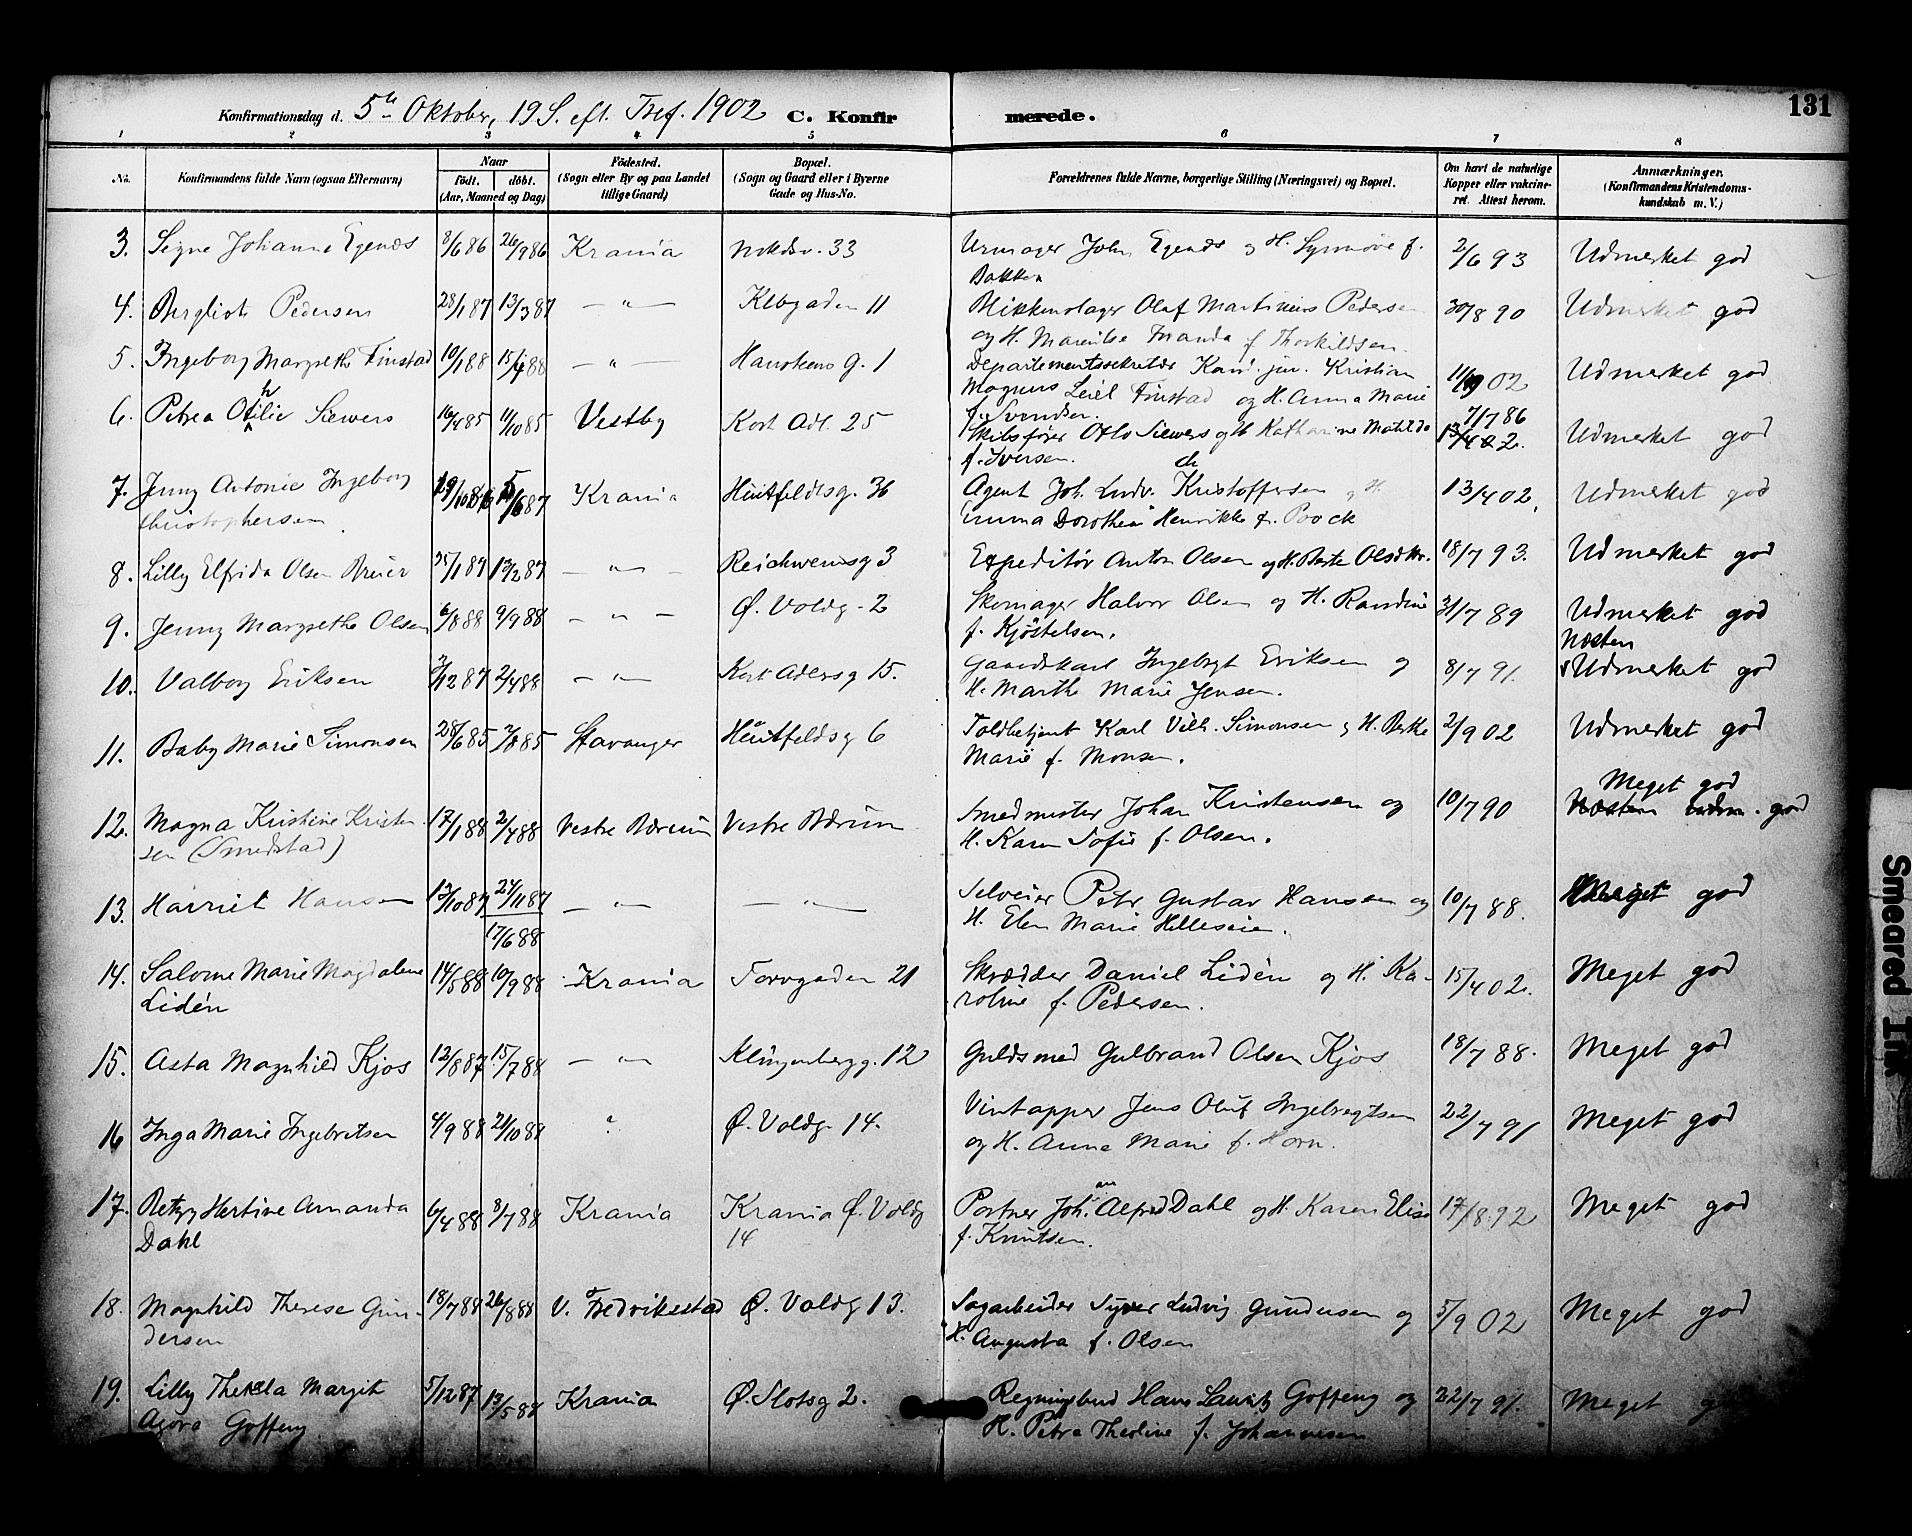 131
Konfirmationsdag d. 5te Oktober, 19 S. eft. Tref. 1902 C. Konfirmerede.
1 2 3 4 5 6 7 8
No. Konfirmandens fulde Navn (ogsaa Efternavn) Naar födt. döbt. (Aar, Maaned og Dag) Födested. (Sogn eller By og paa Landet tillige Gaard) Bopæl. (Sogn og Gaard eller i Byerne Gade og Hus-No. Forældrenes fulde Navne, borgerlige Stilling (Næringsvei) og Bopæl. Om havt de naturlige Kopper eller vaccineret. Attest herom. Anmærkninger. (Konfirmandens Kristendomskundskab m. V.)
3. Signe Johanne Egenæs 8/6 86 26/9 86 Krania 33 Urmager John Egenæs og H. Synnøve f. Bakken 2/6 93 Udmerket god
4. Bergliot Pedersen 28/1 87 13/3 87 — " — 11 Blikkenslager Olaf Martinius Pedersen 30/8 90 Udmerket god
og H. Amanda f. Thorkildsen.
5. Ingeborg Margrethe Finstad 10/1 88 15/4 88 — " — g. 1 Departementssekretær Kand. jur. Kristian Udmerket god
Magnus Finstad og H. Anna Marie
f. Svendsen. 7/7 86
6. Petrea Othilie Siewers 16/4 85 11/10 85 Vestby Kort Adl. 25 Skibsfører Otto Siewers og H. Katharine Matilde 13/4 02. Udmerket god
f. Iversen.
7. Jenny Antonie Ingeborg Krania Huitfeldtsg. 36 Agent Joh. Ludv. Kristoffersen og H. 13/4 02. Udmerket god
Christophersen Emma Dorothea Henrikke f. Poock
8. Lilly Elfrida Olsen 25/1 87 13/2 87 — " — Reichweinsg 3 Expeditør Anton Olsen og H. Berte Olsdtr. 18/7 93. Udmerket god
9. Jenny Margrethe Olsen 6/8 88 9/9 88 — " — Ø. Voldg. 2 Skomager Halvor Olsen og H. Randine 31/7 89 Udmerket god
f. Kjøstelsen. Næsten
10. Valborg Eriksen 2/4 88 — " — Kort Adlersg 15. Gaardskarl Ingebrgt Eriksen og 8/7 91. Udmerket god
H. Marthe Marie Jensen.
11. Baby Marie Simonsen 28/6 85 Stavanger Huitfeldsg 6 Toldbetjent Karl Vilh. Simonsen og H. Berthe 2/9 02 Udmerket god
Marie f. Monsen.
Meget god
12. Magna Kristine Kristensen (Smedstad) 17/1 88 2/4 88 Vestre Bærum Vestre Bærum Smedmester Johan Kristensen og 10/7 90 Næsten udm. god
H. Karen Sofie f. Olsen.
13. Harriet Hansen 13/10 87 24/11 87 — " — — " — Selveier Petr Gustav Hansen og 10/7 88. Meget god
17/6 88 H. Elen Marie Helleseie.
14. Salome Marie Magdalene 14/5 88 10/9 88 Krania Torvgaden 21 Skrædder Daniel Lidén og H. Ka- 15/4 02. Meget god
Lidén roline f. Pedersen.
15. Asta Magnhild Kjos 12/8 87 15/7 88 — " — Klingenbergg. 12 Guldsmed Gulbrand Olsen Kjos 18/7 88. Meget god
16 Inga Marie Ingebretsen 4/9 88 21/10 88 " Ø. Voldg. 14. Vintapper Jens Oluf Ingebregtsen 22/7 91 Meget god
og H. Anna Marie f. Horn.
17. Betzy Hertine Amanda 6/4 88 8/7 88 Krania Krania Ø. Voldg Portner Johan Alfred Dahl og H. Karen Elise 17/8 92 Meget god
Dahl 14 f. Knutsen.
18. Magnhild Therese Gun- 18/7 88 26/8 88 V. Fredriksstad Ø. Voldg 13. Sagarbeider Syver Ludvig Gundersen og 5/9 02 Meget god
dersen H. Augusta f. Olsen
19. Lilly Thekla Margit 5/12 87 13/5 88 Krania Ø. Slotsg 2. Regningsbud Hans Lauritz Goffeng og 22/7 91. Meget
Agora Goffeng H. Petra Theoline f. Johannesen
Smeared Ink